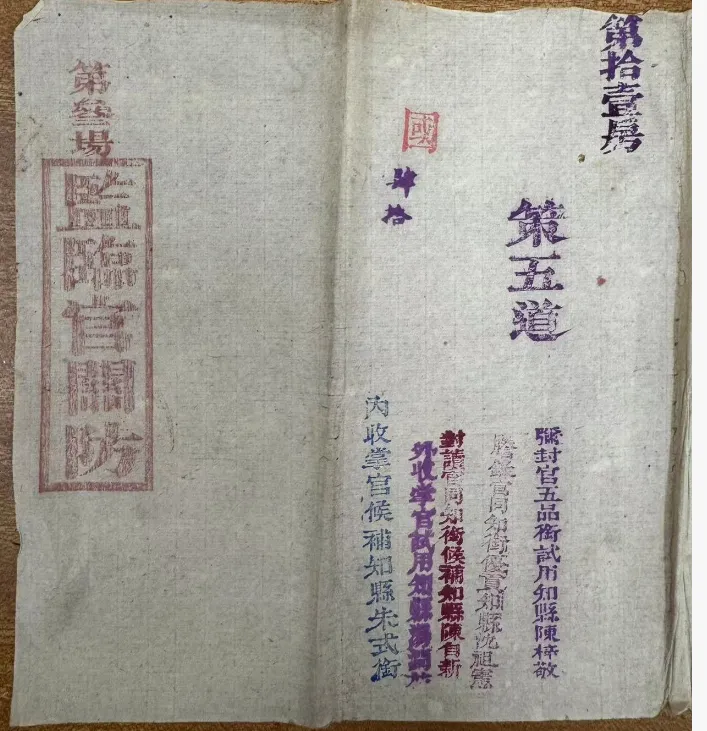 第拾壹房
策五道
彌封官五品銜試用知縣陳梓敬
謄錄官同知銜優貢知縣沈祖憲
對讀官同知銜候補知縣陳自新
外收掌官試用知縣湯
內收掌官候補知縣朱式銜
國
肆拾
第叄場
監臨官關防